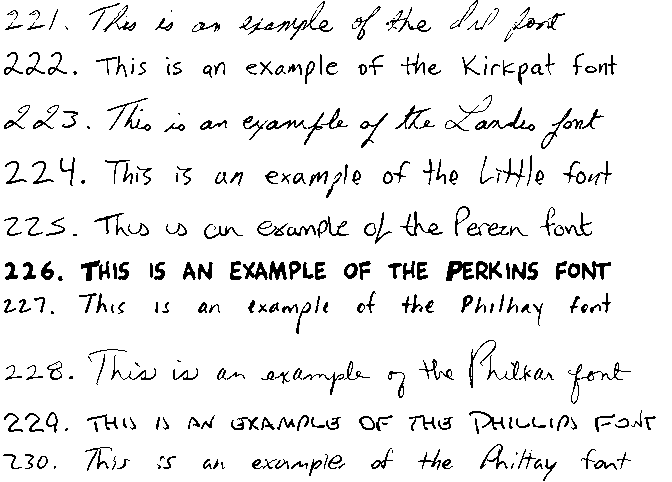 221. This is an example of the dil font
222. This is an example of the Kirkpat font
223. This is an example of the Landes font
224. This is an example of the Little font
225. This is an example of the Perezn font
226. THIS IS AN EXAMPLE OF THE PERKINS FONT
227. This is an example of the Philhay font
228. This is an example of the Philkar font
229. THIS IS AN EXAMPLE OF THE PHILLIPS FONT
230. This is an example of the Philtay font